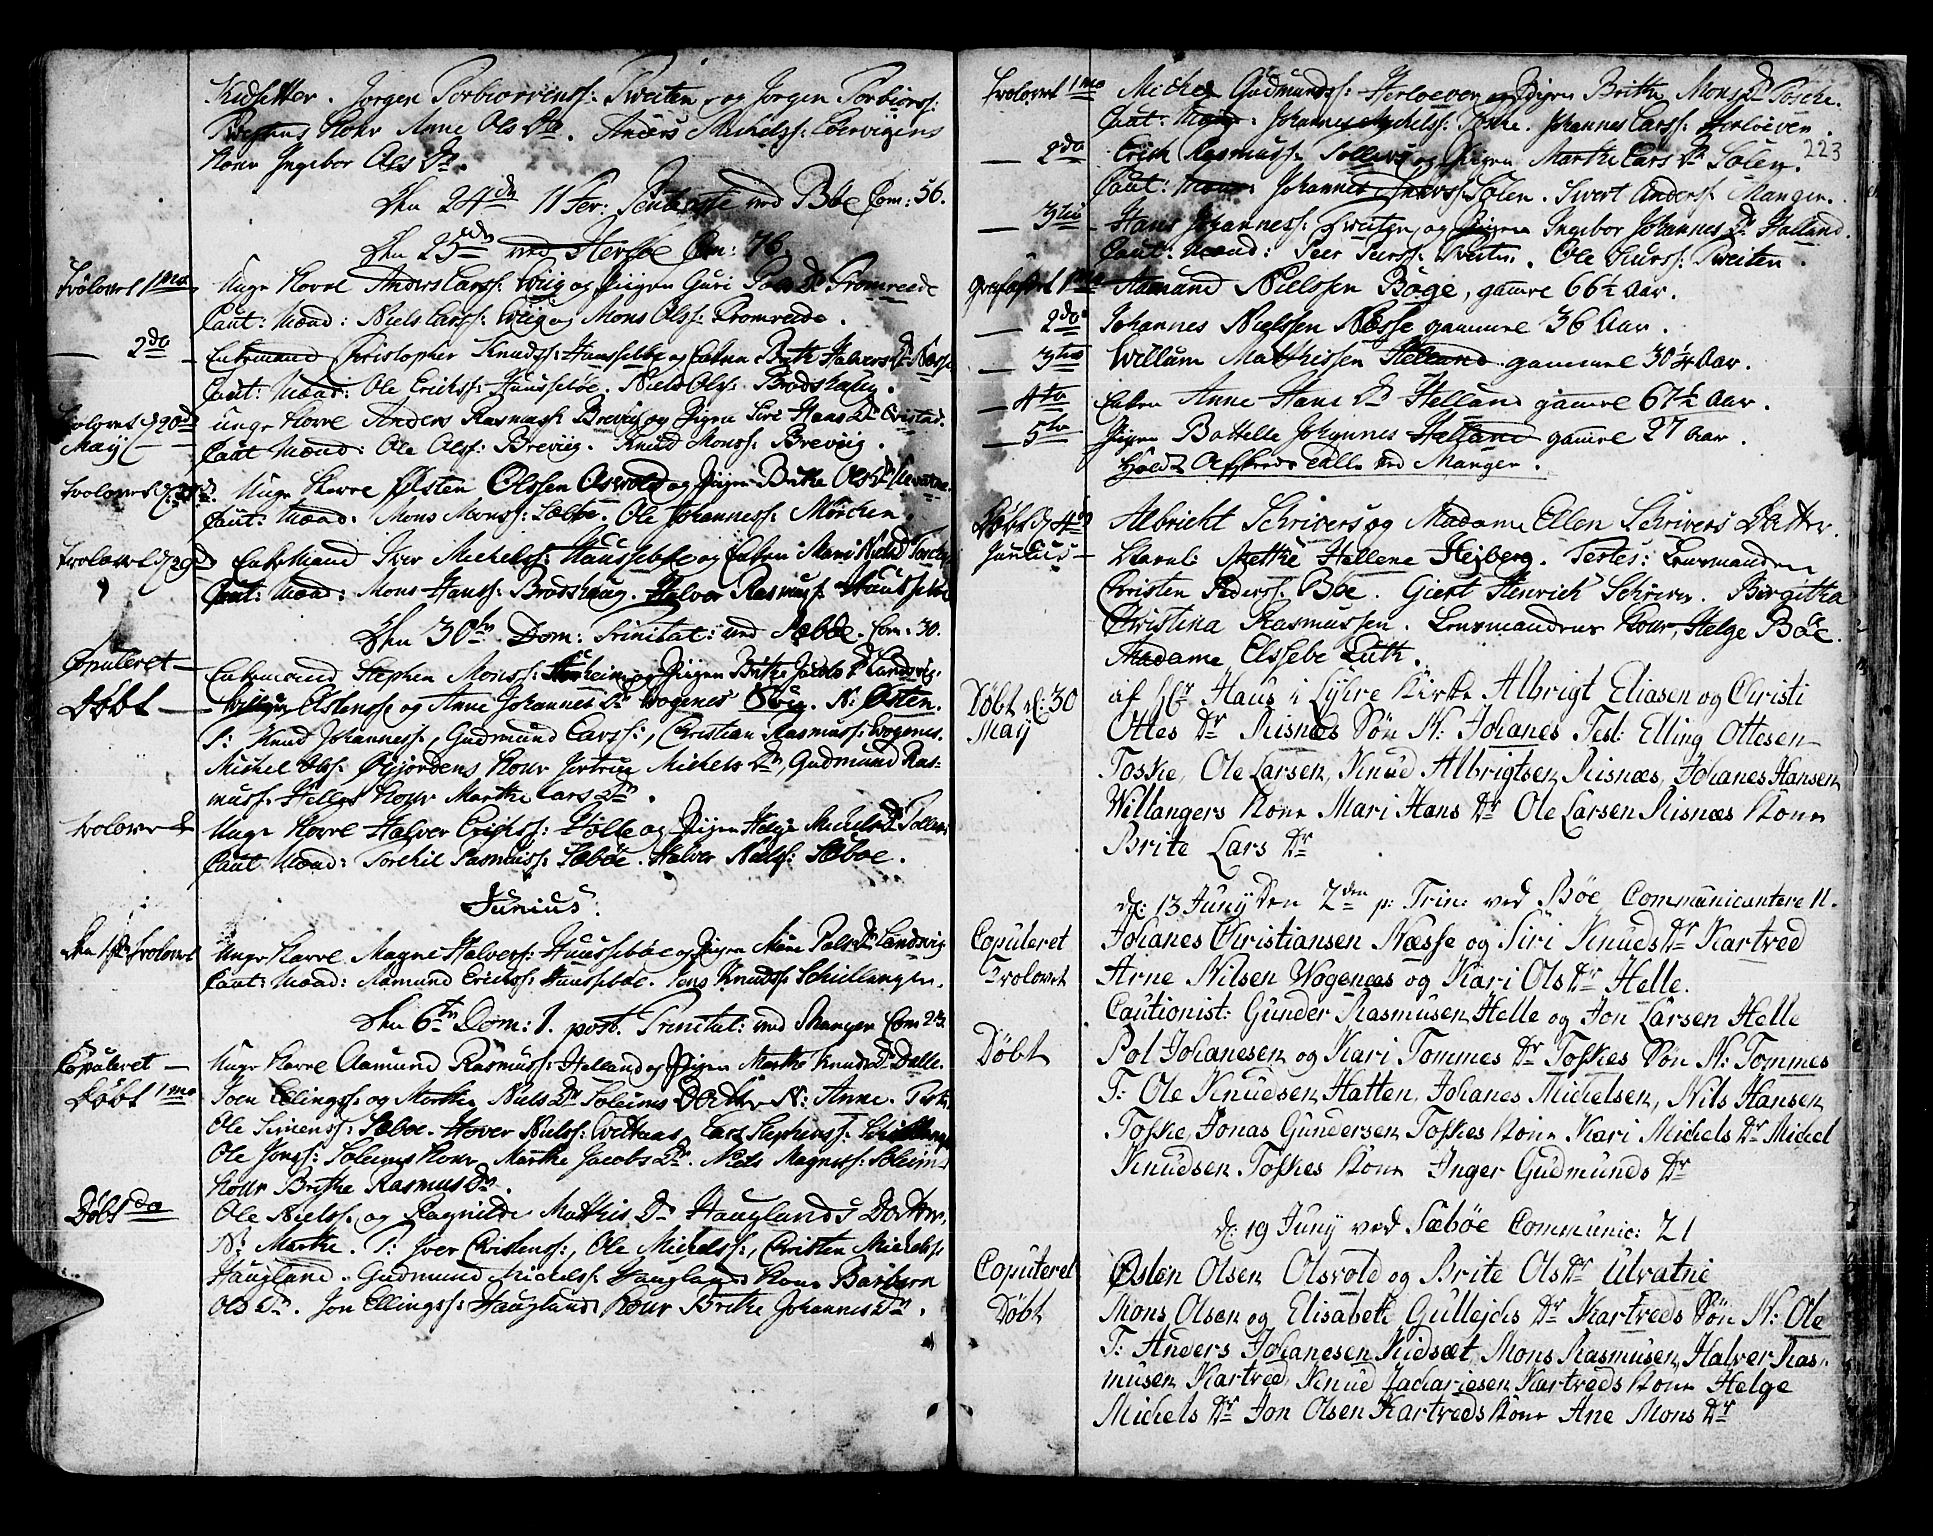 Kidsetter. Jørgen Torbiørnss: Tweiten, og Jørgen Torbiørss:
Tweitens Konr Anne Ols Dr. Anders Michelss:
Konr Ingebor Ols Dr.
Den 24de II Fer: Pentecoste ved Bøe Com: 56.
Den 25de ved Herløe Com: 76.
Trolovet 1mo Unge Karl Anders Larss: og Pigen Guri Pols Dr. Fromreide
Caut: Mænd: Niels Larss: og Mons Olss: Fromreide.
— 2do Enkemand Christopher Knudss: og Enken Brite Halvers Dr
Caut: Mænd: Ole Erichss: Huussebøe. Niels Olss. Brodshaug.
Trolovet d. 20de unge Karl Anders Rasmuss: Breviig og Pigen Siri Hans Dr.
May Caut Mænd: Ole Olss: Breviig. Knud Monss: Breviig.
Trolovet Unge Karl Østen Olssen Oswold og Pigen Brithe Ols Dr
Caut: Mænd: Mons Monss: Sæbøe. Ole Johanness: Mørchen.
Trolovet d. 29de Enkemand Iver Michelss: Huussebøe og Enken Mari Niels Dr
Caut: Mænd: Mons Hanss: Brodshaug. Halver Rasmuss: Huussebøe
Den 30te Dom: Trinitat: ved Sæbøe. Com: 30.
Copuleret — Enkemand Stephen Monss: og Pigen Brithe Jacobs Dr Landsvig.
Døbt — Elstenss: og Anne Johannes Dr Wogenes N: Østen.
T: Knud Johanness:, Gudmund Larss:, Christian Rasmuss: Wogenes.
Michel Olss. Øyjordens Konr Jertrue Michels Dr, Gudmund Ras-
muss. Helles Konr Marthe Lars Dr.
Trolovede Unge Karl Halver Erichss: og Pigen Helje
Caut Mænd: Torchil Rasmuss. Sæbøe. Halver Nielss: Sæbøe.
Junius.
Den 1ste Trolovet Unge Karl Magne Halverss: Huussebøe og Pigen Mari Pols Dr Landsvig
Caut: Mænd: Aamund Erichss: Huussebøe. Jens Knudss: Schillangen.
Den 6te Dom: I. post. Trinitat: ved Manger Com 23.
Copuleret — Unge Karl Aamund Rasmuss: Helland og Pigen Marthe Knuds Dr Dalle.
Døbt 1mo Joen Ellingss: og Marthe Niels Dr Soleims Dotter N: Anne. Test:
Ole Simenss: Sæbøe. Hover Nielss: Lars Stephenss:
Ole Jonss: Soleims Konr Marthe Jacobs Dr. Niels Magness: Soleims
Konr Brithe Rasmus Dr.
Døbt 2do Ole Nielss. og Ragnilde Mathis Dr Hauglands Dotter,
N: Marthe. T: Iver Christenss:, Ole Michelss:, Christen Michelss:
Haugland. Gudmund Michelss. Hauglands Konr Barbara
Ols Dr. Jon Ellingss: Hauglands Konr Brithe Johannes Dr.
223
Trolovet 1mo Michel Gudmundss: Herløever og Pigen Brithe Mons Dr Tosche.
Caut: Mænd: Johannes Michelss: Toske. Johannes Larss: Herløeven.
— 2do Erich Rasmuss. Tollers og Pigen Marthe Lars Dr Solen.
Caut: Mænd: Johannes Solen. Siwert Anderss: Manger.
— 3tio Hans Johanness: Tweiten og Pigen Ingebor Johannes Dr. Halland.
Caut: Mænd: Peer Perss: Tweiten. Ole Tweiten.
Græsfæstet 1mo Aamund Nielssen Bøge, gamle 66½ Aar.
— 2do Johannes Nielssen Næsse gamle 36 Aar.
— 3tio Willum Mathissen Helland gamle 30¼ Aar.
— 4to Enken Anne Hans Dr Helland gamle 67½ Aar.
— 5to Pigen Botelle Johannes Helland gamle 27 Aar.
Holdt Afskeds Talle ved Manger.
Døbt d. 4de Albricht Schrivers og Madame Ellen Schrivers Datter.
Junius — Metthe Hellene Hejberg. Testes: Lensmanden
Christen Pederss: Bøe. Giert Hinrich Schriver. Birgitha
Christina Rasmussen. Lensmandens Konr, Helge Bøe.
Madame Elssebe Luth.
Døbt d: 30 af Hr Haus i Lyhre Kirke Albrigt Eliasen og Christi
May Ottes Dr Risnæs Søn N: Johanes Test: Elling Ottesen
Toske, Ole Larsen, Knud Albrigtsen Risnæs, Johanes Hansen
Willangers Kone Mari Hans Dr Ole Larsen Risnæs Kone
Brite Lars Dr
d: 13 Juny Den 2den p: Trin: ved Bøe Communicantere 11.
Copuleret Johanes Christiansen Næsse og Siri Knuds Dr Kartved
Trolovet Arne Nilsen Wogenæs og Kari Ols Dr Helle.
Cautionist: Gunder Rasmusen Helle og Jon Larsen Helle
Døbt Pol Johanesen og Kari Tommes Dr Toskes Søn N: Tommes
T: Ole Knudsen Hatten, Johanes Michelsen, Nils Hansen
Toske, Jonas Gundersen Toskes Kone Kari Michels Dr Michel
Knudsen Toskes Kone Inger Gudmunds Dr
d: 19 Juny ved Sæbøe Communic: 21
Copuleret Østen Olsen Olsvold og Brite Ols Dr Ulvatne
Døbt Mons Olsen og Elisabeth Gulleichs Dr Kartveds Søn N: Ole
T: Anders Johanesen Kidsæt, Mons Rasmusen, Halver Ras-
musen Kartved, Knud Zachariesen Kartveds Kone Helge
Michels Dr Jon Olsen Kartveds Kone Ane Mons Dr